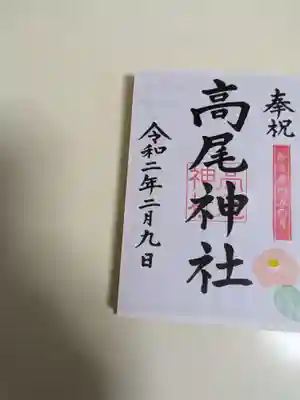 奉祝
高尾神社
令和二年二月九日